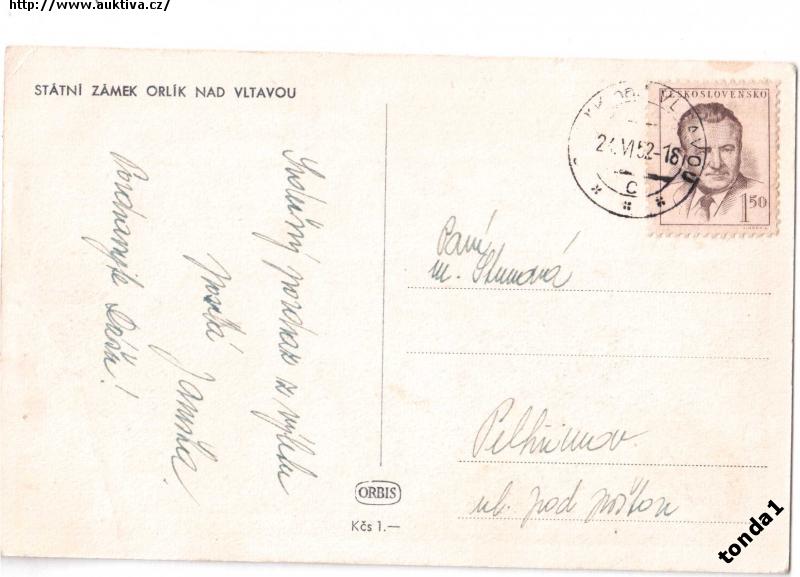 http://www.auktiva.cz/
STÁTNÍ ZÁMEK ORLÍK NAD VLTAVOU
Srdečný pozdrav z výletu
posílá Jarmila.
Pozdravujte Dášu!
ČESKOSLOVENSKO
1 50
VLTAVOU
24.VI.52-18
C
Paní
m.
Pelhřimov.
ul. pod poštou
ORBIS
Kčs 1.—
tonda1